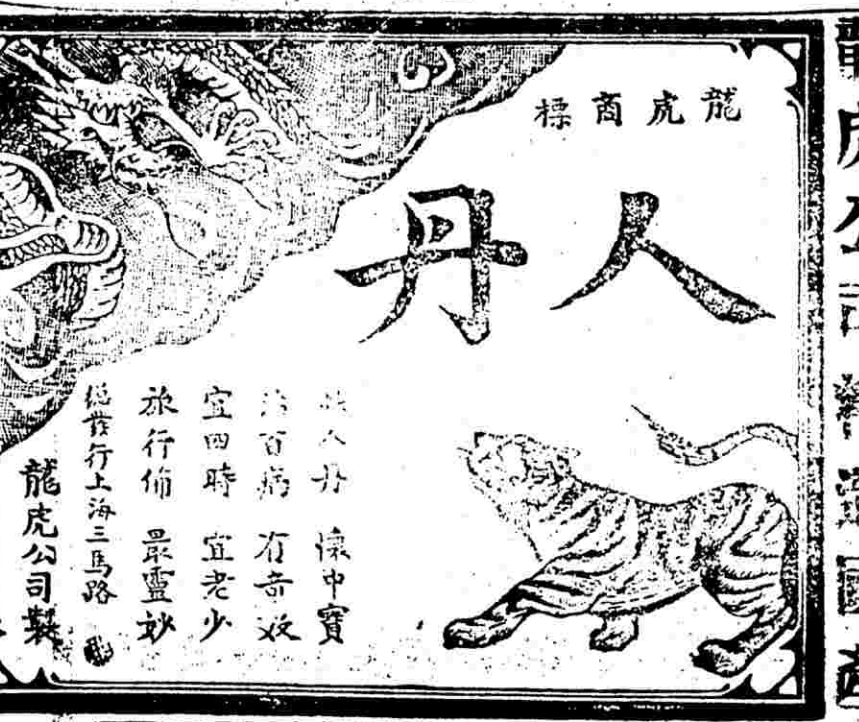 龍虎商標
人丹
人丹 懷中寶
治百病 有奇效
宜四時 宜老少
旅行備 最靈妙
總發行上海三馬路
龍虎公司製
龍虎公司
國產